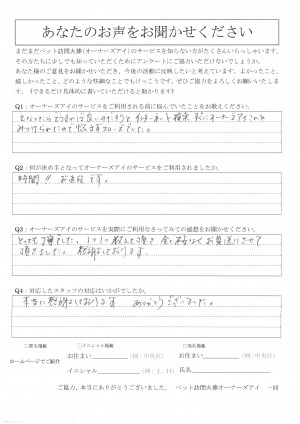 あなたのお声をお聞かせください
まだまだペット訪問火葬(オーナーズアイ)のサービスを知らない方がたくさんいらっしゃいます。
その方たちに少しでも知っていただくためにアンケートにご協力いただけないでしょうか。
あなた様のご意見をお聞かせいただき、今後の活動に反映したいと考えています。よかったこと、
嬉しかったこと、どのような些細なことでもけっこうです。ぜひご協力をよろしくお願いいたしま
す。(できるだけ具体的に書いていただけると助かります)
Q1：オーナーズアイのサービスをご利用される前に悩んでいたことをお教えください。
Q2：何が決め手となってオーナーズアイのサービスをご利用されましたか。
時間!! お値段です。
Q3：オーナーズアイのサービスを実際にご利用なさってみての感想をお聞かせください。
とても丁寧でした。
頂きました。感謝しております。
Q4：対応したスタッフの対応はいかがでしたか。
本当に感謝しております ありがとうございました。
□匿名掲載 □イニシャル掲載 □実名掲載
ホームページでご紹介
お住まい (例：中央区) お住まい (例：中央区)
イニシャル (例：J．H) 氏名
ご協力、本当にありがとうございました。 ペット訪問火葬オーナーズアイ 一同